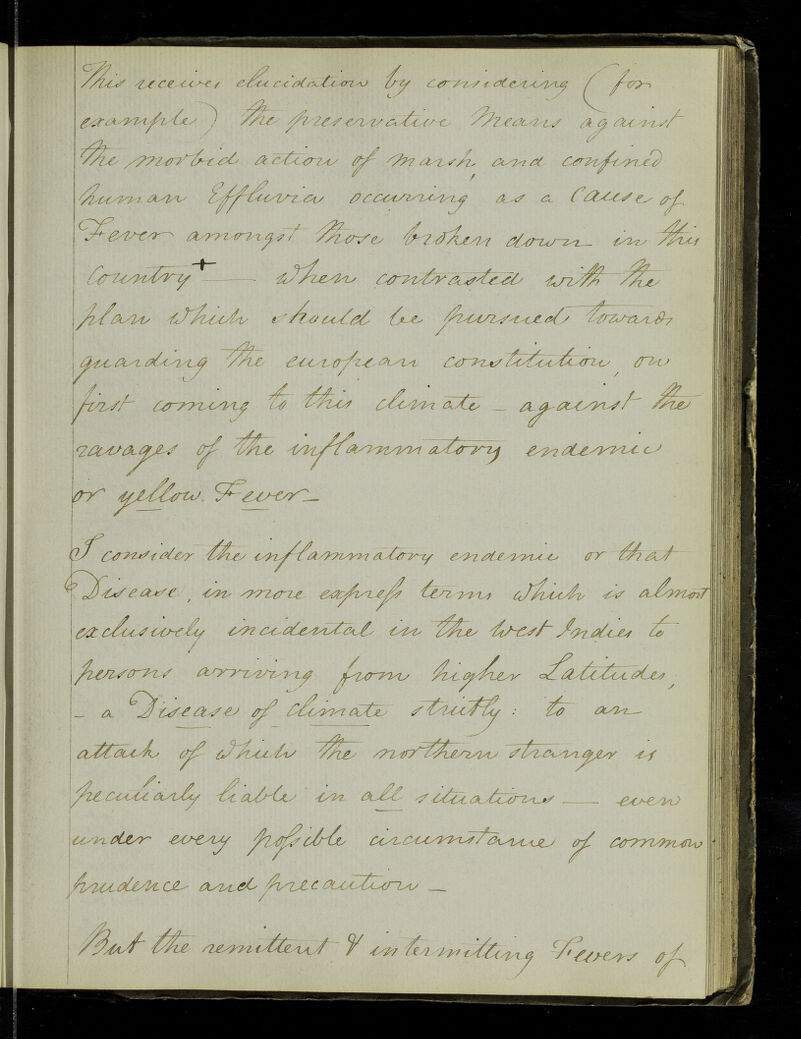 This receives elucidation by considering (for
example) the preservative Means against
the morbid action of marsh, and confined
human Effluvia occurring as a Cause of
Fever amongst those broken down in this
Country+ — when contrasted with the
plan which should be pursued towards
guarding the european constitution, on
first coming to this climate – against the
ravages of the inflammatory endemic
or yellow Fever –
I consider the inflammatory endemic or that
Disease, in more express terms which is almost
exclusively incidental in the West Indies to
persons arriving from higher Latitudes,
– a Disease of climate strictly: to an
attack of which the northern stranger is
peculiarly liable in all situations — even
under every possible circumstance of common
prudence and precaution –
But the remittent & intermitting Fevers of